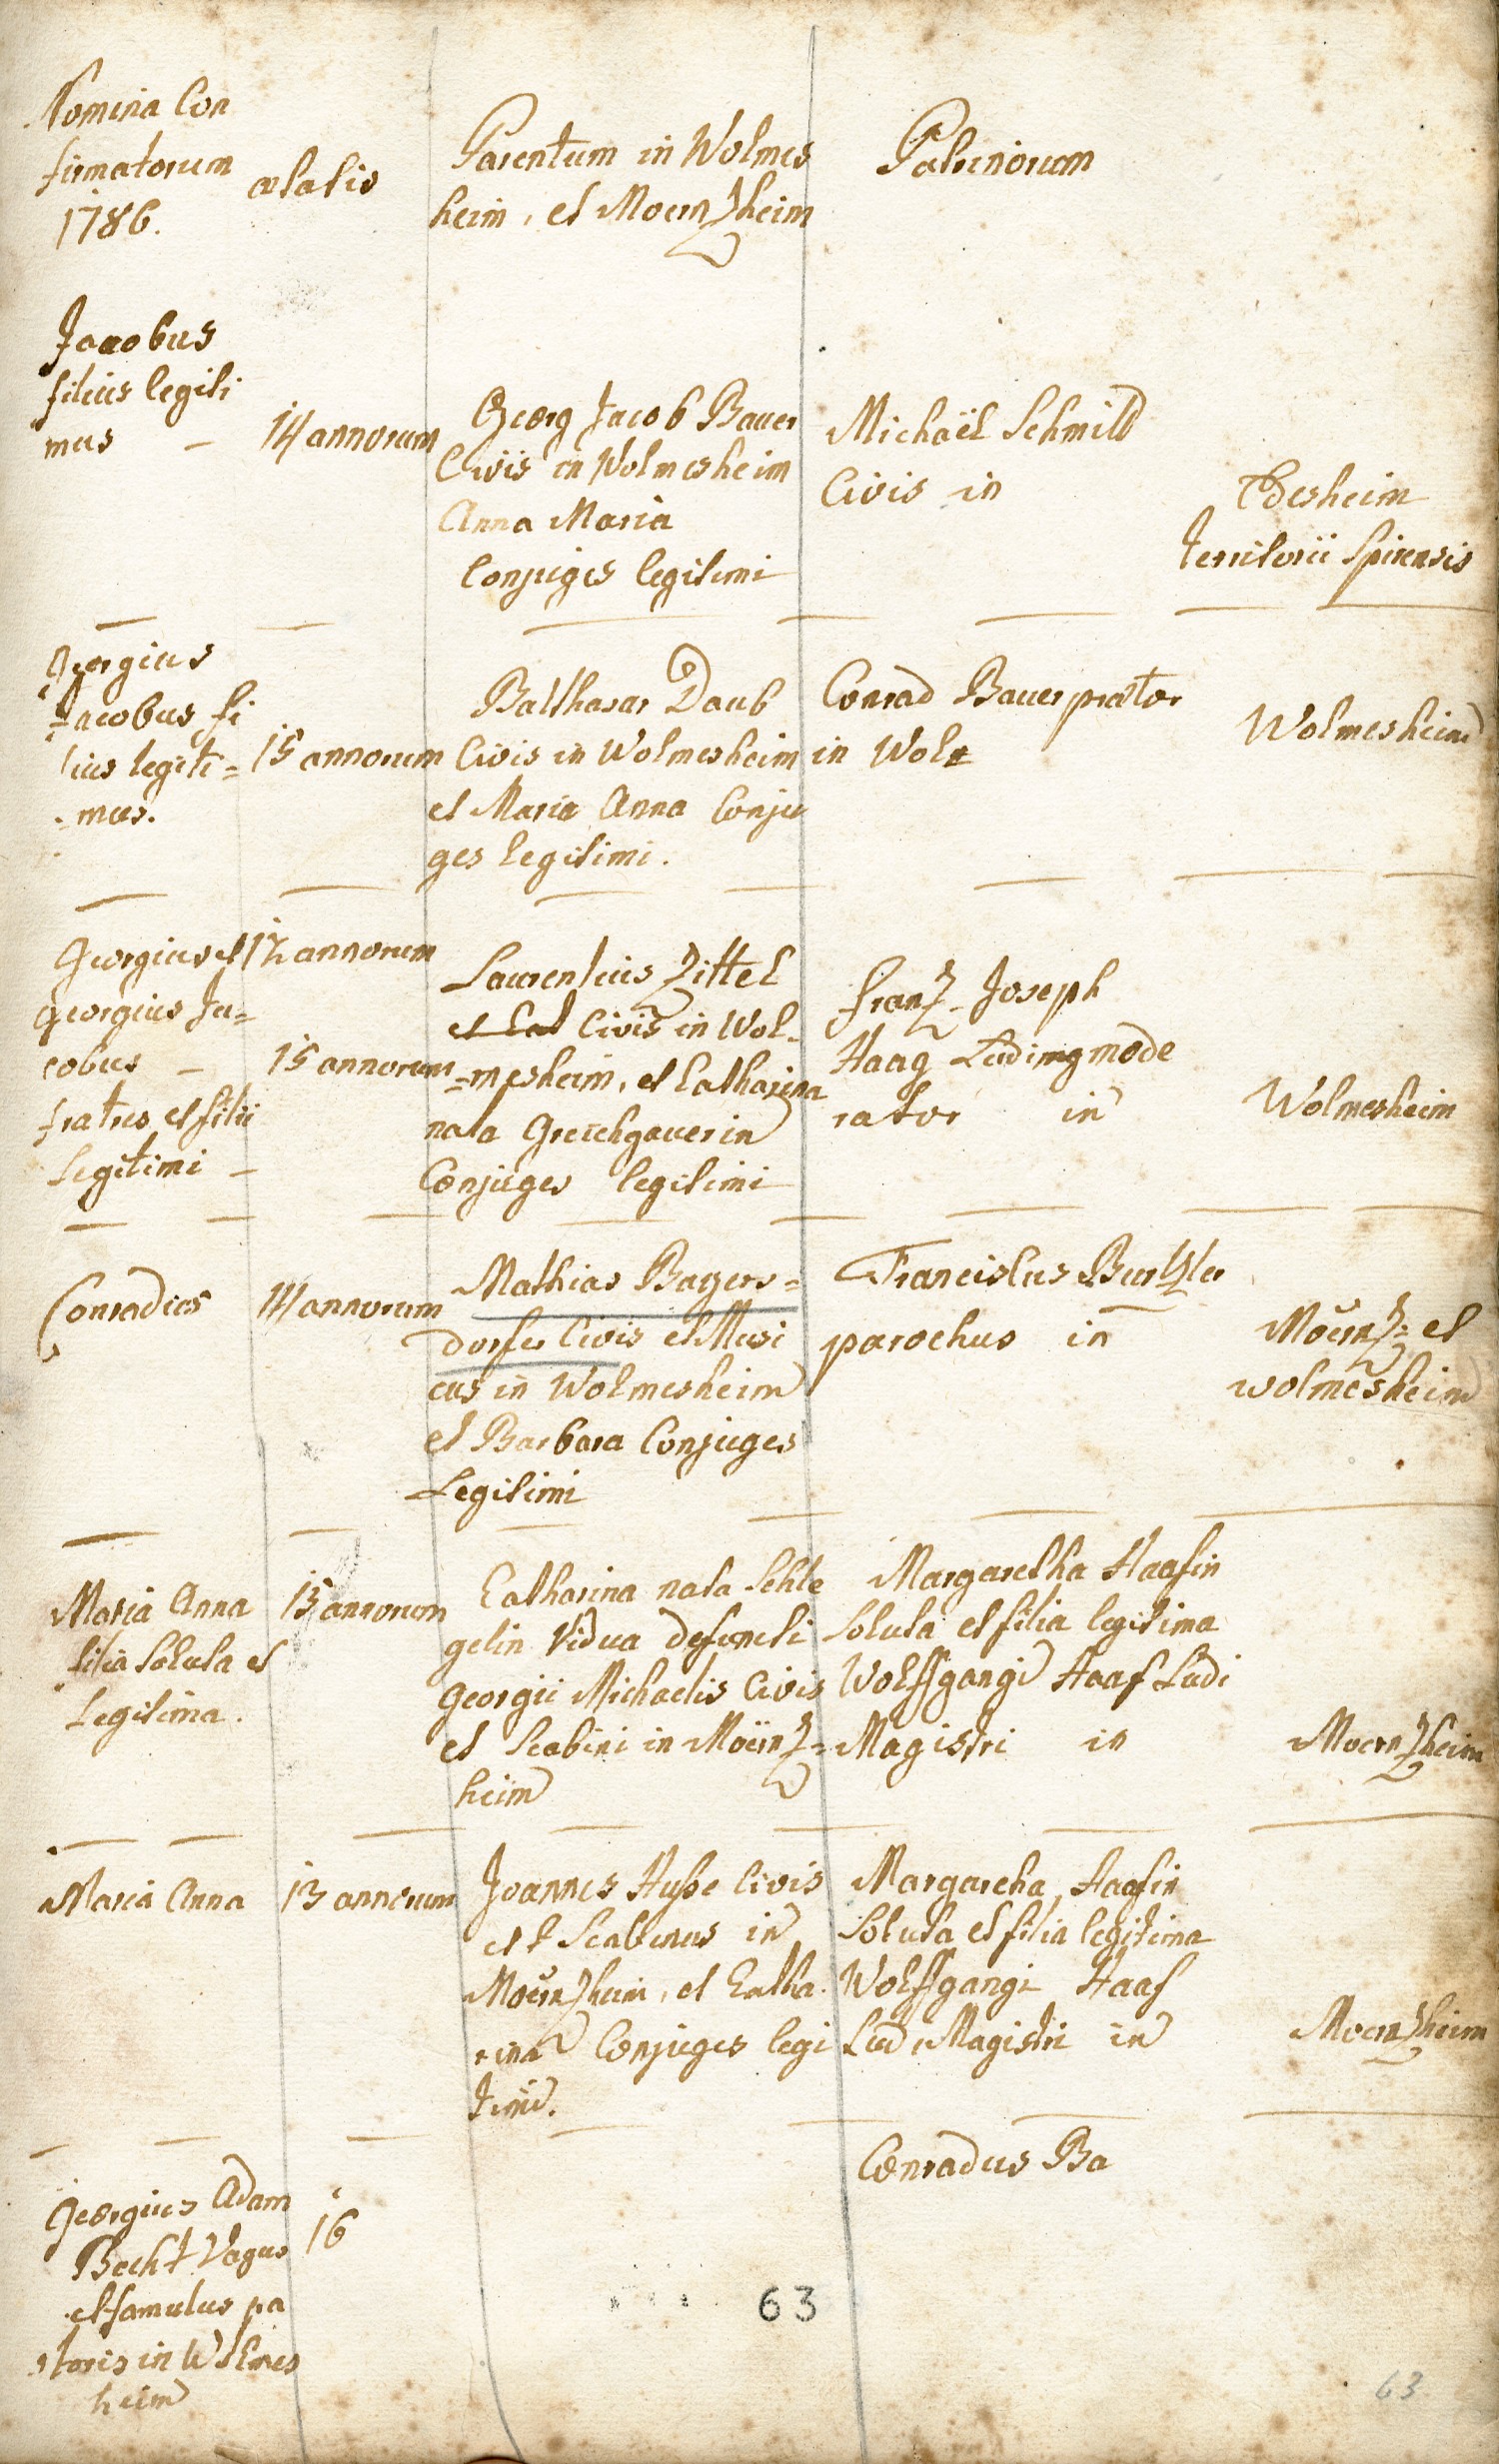 Nomina Con
firmatorum
1786.
ætatis
Parentum in Wolmes
heim, et Moernzheim
Patrinorum
Jacobus
filius legiti
mus –
14 annorum
Georg Jacob Bauer
Civis in Wolmesheim
Anna Maria
Conjuges legitimi
Michaël Schmitd
Civis in
Edesheim
Territorii Spirensis
Georgius
Jacobus fi
lius legiti=
=mus.
15 annorum
Balthasar Daub
Civis in Wolmesheim
et Maria Anna Conju
ges legitimi.
Conrad Bauer prætor
in Wol
Wolmesheim
Georgius et
Georgius Ja=
cobus –
fratres et filii
Legitimi –
12 annorum
15 annorum
Laurentius Zittel
et Cat Civis in Wol=
=mesheim, et Catharina
nata Greichgauerin
Conjuges legitimi
Franz Joseph
Haag Ludimode
rator in
Wolmesheim
Conradus
14 annorum
Mathias Bayers=
dorfer Civis et Musi
cus in Wolmesheim
et Barbara Conjuges
Legitimi
Franciscus
parochus in
Möernz= et
wolmesheim
Maria Anna
filia Soluta et
Legitima.
15 annorum
Catharina nata Schle
gelin Vidua defuncti
Georgii Michaelis Civis
et Scabini in Moërnz=
heim
Margaretha Haafin
Soluta et filia legitima
Wolffgangi Haaf Ludi
Magistri in
Moernzheim
Maria Anna
13 annorum
Joannes Huße Civis
et Scabinus in
Moërnzheim, et Catha
rina Conjuges legi
timi.
Margareha Haafin
Soluta et filia legitima
Wolffgangi Haaf
Ludi Magistri in
Moernzheim
Georgius Adam
Becht Vagus
et famulus pa
storis in Wolmes
heim
16
Conradus Ba
63
63